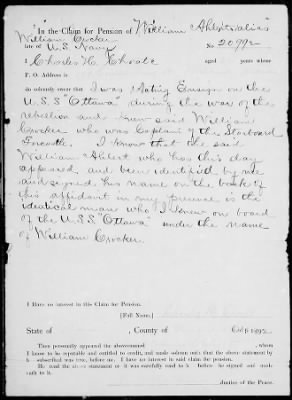 In the Claim for Pension of William Ahlert alias
William Crocker
late of U.S. Navy No. 20992
I Charles H. Choate aged years whose
P. O. Address is
do solemnly swear that I was Acting Ensign on the
U.S.S. "Ottawa" during the war of the
rebellion and knew said William
Crocker who was Captain of the Starboard
Forecastle. I know that the said
William Ahlert who has this day
appeared, and been identified by me
and signed his name on the back of
this affidavit in my presence is the
identical man who I knew on board
of the U.S.S. "Ottawa" under the name
of William Crocker.
I have no interest in this Claim for Pension.
[Full Name.]
State of , County of
Then personally appeared the abovenamed , whom
I know to be reputable and entitled to credit, and made solemn oath that the above statement by
h subscribed was true, before me. I have no interest in said claim for pension.
He read the above statement or it was carefully read to h before he signed and made
oath to it.
Justice of the Peace.